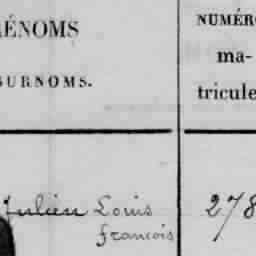 ÉNOMS
NUMÉRO
ma-
SURNOMS.
tricule
Julien Louis
françois
278